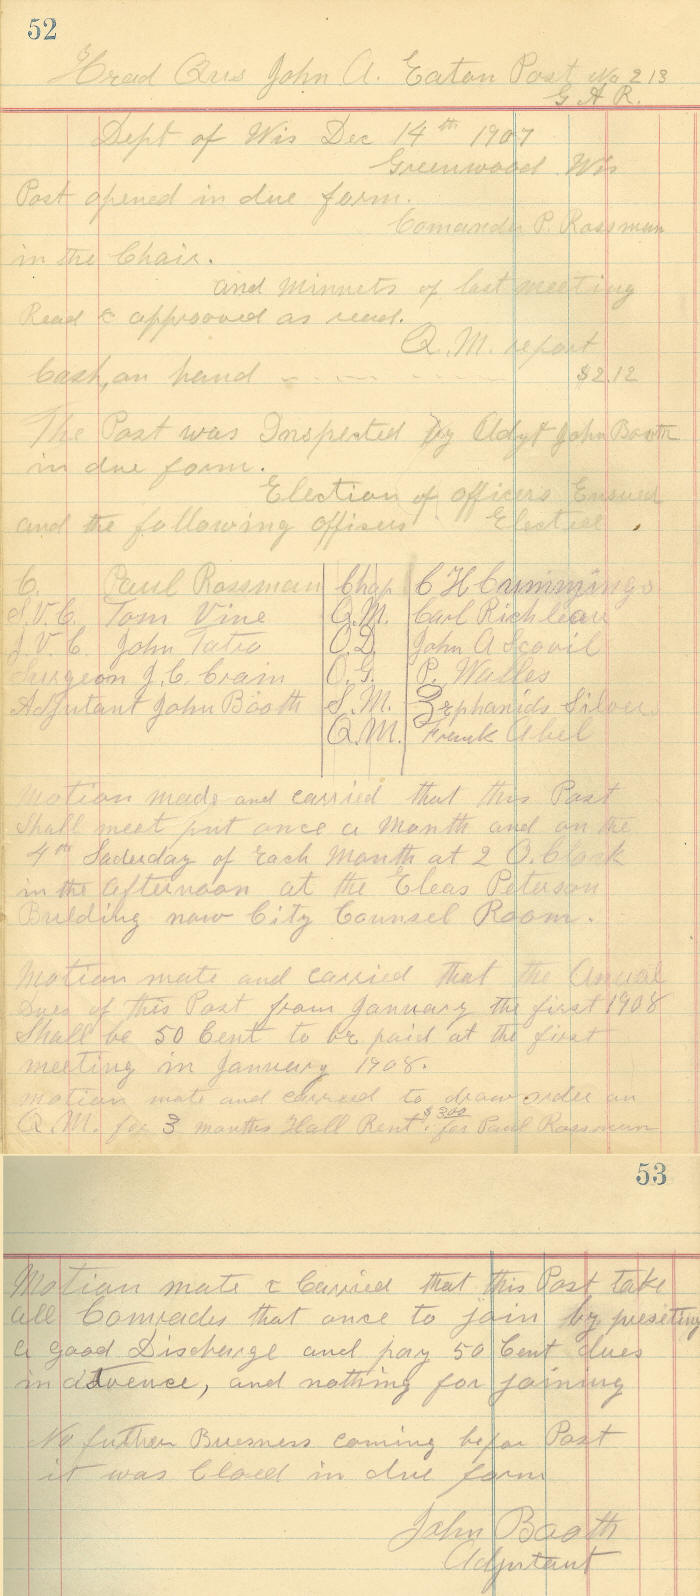 52
Head Qrs John A. Eaton Post No 213
G A R.
Dept of Wis Dec 14th 1907
Greenwood Wis
Post opened in due form.
Comander P. Rossman
in the Chair.
and Minnets of last meeting
Read & approoved as read.
Q.M. report
Cash, on hand $2.12
The Post was Inspected by Adgt John Booth
in due form.
Election of officers Ensued
and the following officers Elected.
C. Paul Rossman Chap C H Cummings
S.V.C. Tom Vine Q.M. Carl Richleau
J.V.C. John Tatro O.D. John A Scovil
Surgeon J.C. Crain O.G. P. Walles
Adjutant John Booth S.M. Zephanids Silver
Q.M. Frank Abel
Motion made and carried that this Post
Shall meet put once a Month and on the
4th Saderday of Each Month at 2 O.Clock
in the afternoon at the Eleas Peterson
Building now City Counsel Room.
Motion mate and carried that the Anual
Dues of this Post from January the first 1908
Shall be 50 Cent to be paid at the first
meeting in January 1908.
motion mate and carried to draw order on
Q.M. for 3 months Hall Rent $3.00 for Paul Rossman
53
Motion mate & Carried that this Post take
all Comrades that once to join by preseting
a good Discharge and pay 50 Cent dues
in advence, and nothing for joining
No futher Buesness coming befor Post
it was Cloed in due form
John Booth
Adjutant